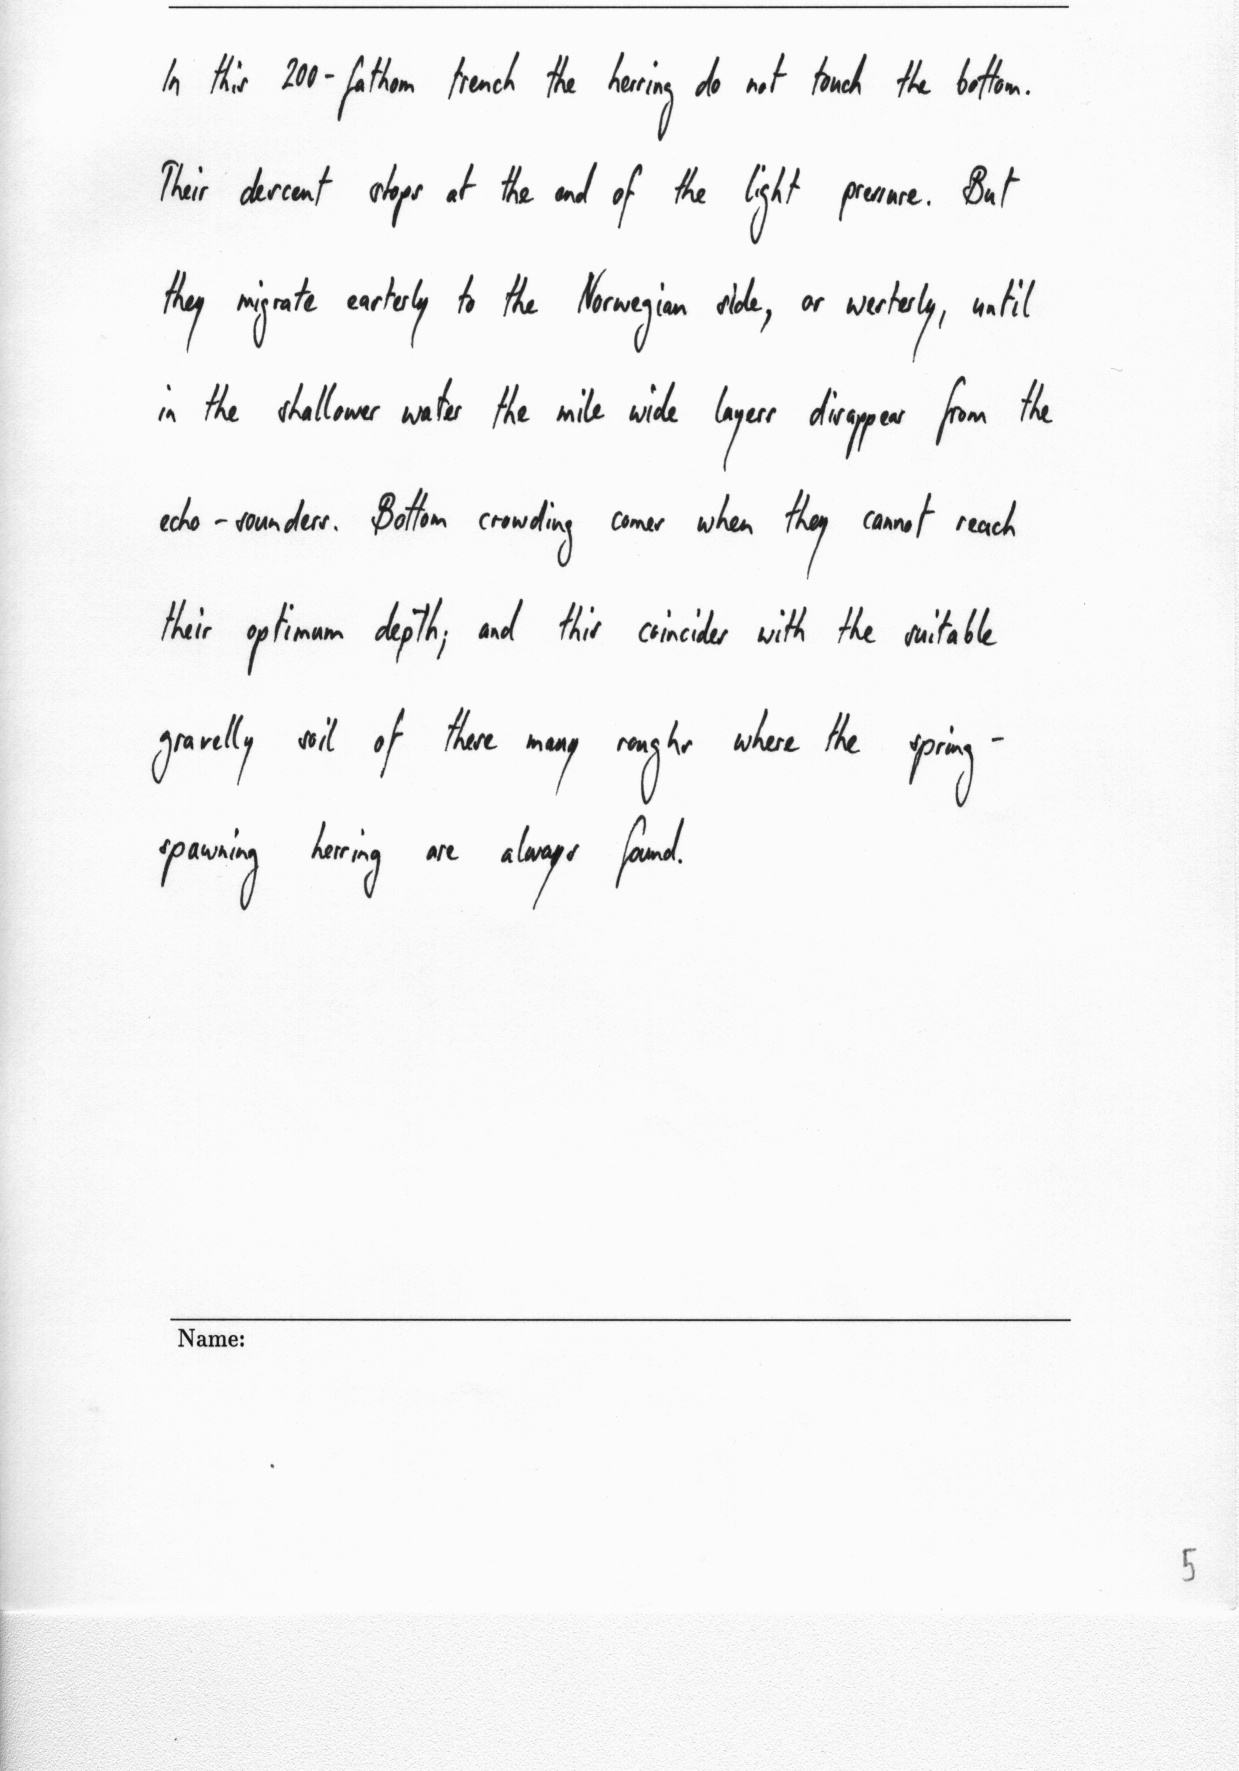 In this 200-fathom trench the herring do not touch the bottom.
Their descent stops at the end of the light pressure. But
they migrate easterly to the Norwegian side, or westerly, until
in the shallower water the mile wide layers disappear from the
echo-sounders. Bottom crowding comes when they cannot reach
their optimum depth; and this coincides with the suitable
gravelly soil of these many roughs where the spring-
spawning herring are always found.
Name:
5